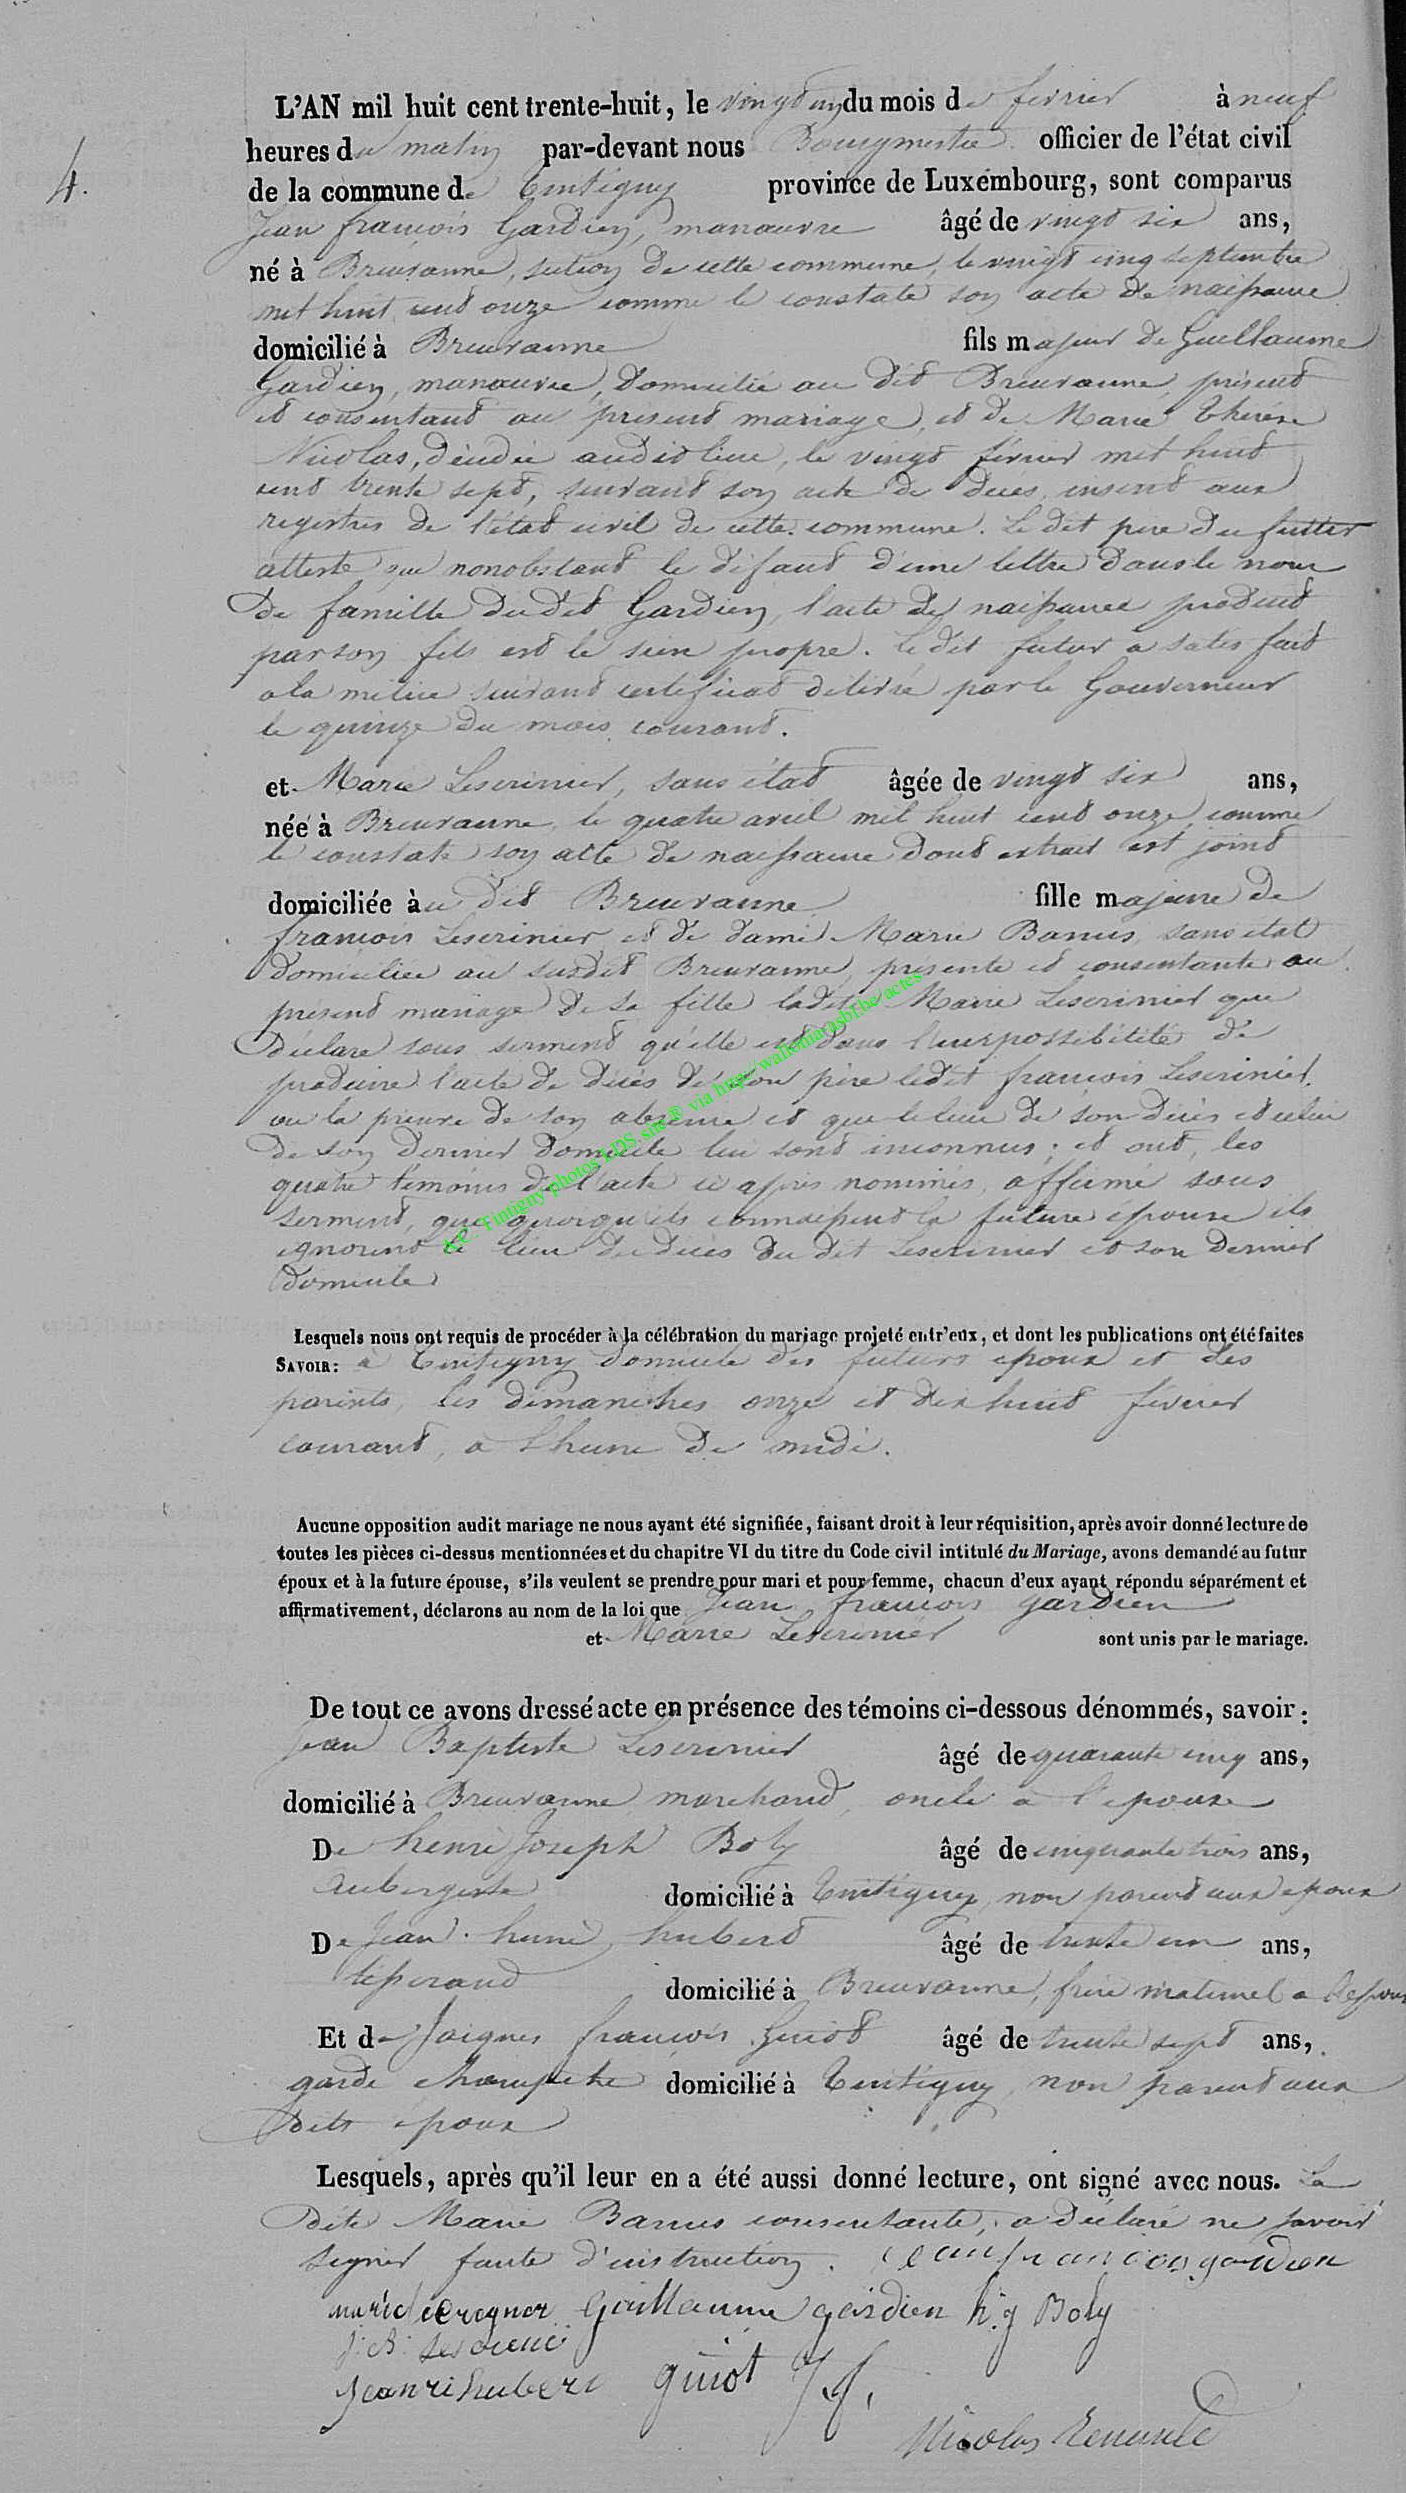 4.
L'AN mil huit cent trente-huit, le vingt un du mois de fevrier à neuf
heures du matin par-devant nous Bourgmestre officier de l'état civil
de la commune de Tintigny province de Luxembourg, sont comparus
Jean françois Gardien, manœuvre âgé de vingt six ans,
né à Breuvanne, section de cette commune, le vingt cinq septembre
mil huit cent onze comme le constate son acte de naissance
domicilié à Breuvanne fils majeur de Guillaume
Gardien, manœuvre, domicilié au dit Breuvanne, présent
et consentant au présent mariage, et de Marie Thérèse
Nicolas, décédée audit lieu, le vingt février mil huit
cent trente sept, suivant son acte de décès inséré aux
registres de l'état civil de cette commune. Le dit père du futur
atteste que nonobstant le défaut d'une lettre dans le nom
de famille du dit Gardien, l'acte de naissance produit
par son fils est le sien propre. Le dit futur a satisfait
a la milice suivant certificat délivré par le Gouverneur
le quinze du mois courant.
et Marie Lescrinier, sans état âgée de vingt six ans,
née à Breuvanne, le quatre avril mil huit cent onze, comme
le constate son acte de naissance dont extrait est joint
domiciliée au dit Breuvanne fille majeure de
françois Lescrinier et de dame Marie Banus, sans état
domiciliée au susdit Breuvanne, présente et consentante au
présent mariage de sa fille ladite Marie Lescrinier que
déclare sous serment qu'elle est dans l'impossibilité de
produire l'acte de décès de son père ledit françois Lescrinier
ou la preuve de son absence et que le lieu de son décès et celui
de son dernier domicile lui sont inconnus; et ont, les
quatre témoins de l'acte ci après nommés, affirmé sous
serment, que quoiqu'ils connaissent la future épouse ils
ignorent le lieu du décès du dit Lescrinier et son dernier
domicile
A.C. Tintigny photos LDS site® via http://walloniaasbl.be/actes
Lesquels nous ont requis de procéder à la célébration du mariage projeté entr'eux, et dont les publications ont été faites
SAVOIR: à Tintigny domicile des futurs époux et des
parents, les dimanches onze et dix huit février
courant, a l'heure de midi.
Aucune opposition audit mariage ne nous ayant été signifiée, faisant droit à leur réquisition, après avoir donné lecture de
toutes les pièces ci-dessus mentionnées et du chapitre VI du titre du Code civil intitulé du Mariage, avons demandé au futur
époux et à la future épouse, s'ils veulent se prendre pour mari et pour femme, chacun d'eux ayant répondu séparément et
affirmativement, déclarons au nom de la loi que Jean françois Gardien
et Marie Lescrinier sont unis par le mariage.
De tout ce avons dressé acte en présence des témoins ci-dessous dénommés, savoir:
Jean Baptiste Lescrinier âgé de quarante cinq ans,
domicilié à Breuvanne, marchand, oncle a l'epouse
De henri Joseph Boly âgé de cinquante trois ans,
aubergiste domicilié à Tintigny, non parent aux epoux
De Jean henri hubert âgé de trente un ans,
tisserand domicilié à Breuvanne, frère maternel a
Et de Jaques françois Guiot âgé de trente sept ans,
garde champêtre domicilié à Tintigny, non parent aux
dits époux
Lesquels, après qu'il leur en a été aussi donné lecture, ont signé avec nous. La
dite Marie Banus consentante, a déclaré ne savoir
signer faute d'instruction. jean françois gardien
marie Guillaume gardien h.j Boly
j.B.
Jean ri hubert guiot J f.
Nicolas